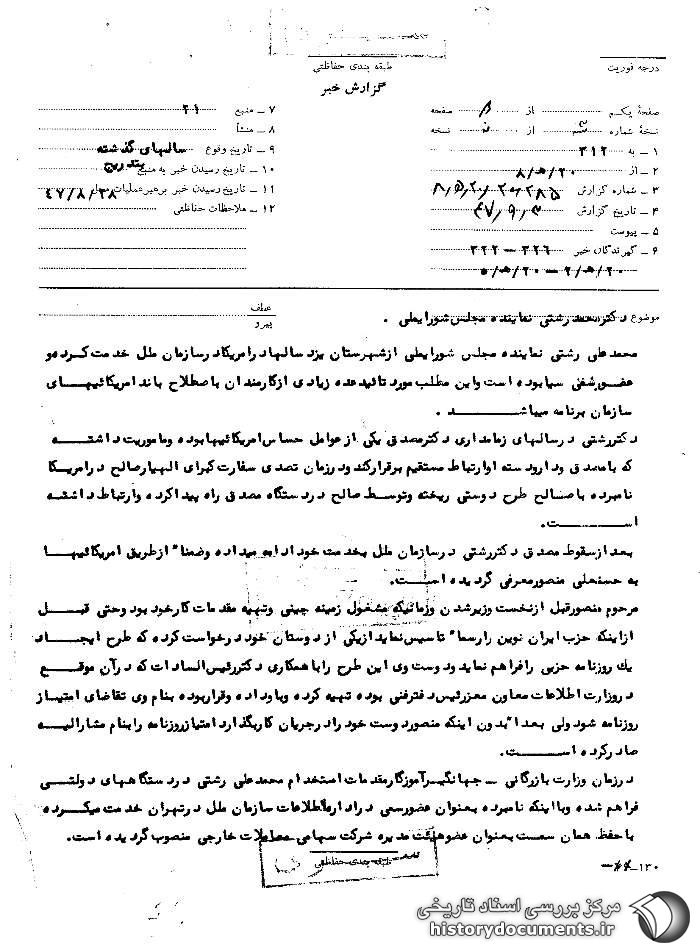 طبقه بندی حفاظتی
درجه فوریت
گزارش خبر
صفحهٔ یکم از صفحه
نسخهٔ شماره از نسخه
۱ – به ۳۱۲
۲ – از ۲۰/ه/۸
۳ – شماره گزارش
۴ – تاریخ گزارش
۵ – پیوست
۶ – گیرندگان خبر ۳۲۶ – ۳۲۲
۲۰/ه/۲ – ۲۰/ه/۵
۷ – منبع ۲۱
۸ – منشأ
۹ – تاریخ وقوع سالهای گذشته
۱۰ – تاریخ رسیدن خبر به منبع بتدریج
۱۱ – تاریخ رسیدن خبر برهبر عملیات ۴۷/۸/۲۸
۱۲ – ملاحظات حفاظتی
موضوع دکتر محمد رشتی نماینده مجلس شورایملی .
عطف
پیرو
محمدعلی رشتی نماینده مجلس شورایملی از شهرستان یزد سالها در امریکا در سازمان ملل خدمت کرده و
عضو رسمی سیا بوده است و این مطلب مورد تائید عده زیادی از کارمندان باصطلاح باند امریکائیهای
سازمان برنامه میباشد .
دکتر رشتی در سالهای زمامداری دکتر مصدق یکی از عوامل حساس امریکائیها بوده و ماموریت داشته
که با مصدق و دار و دسته او ارتباط مستقیم برقرار کند و در زمان تصدی سفارت کبرای الهیار صالح در امریکا
نامبرده با صالح طرح دوستی ریخته و توسط صالح در دستگاه مصدق راه پیدا کرده و ارتباط داشته
است.
بعد از سقوط مصدق دکتر رشتی در سازمان ملل بخدمت خود ادامه میداده و ضمنا" از طریق امریکائیها
به حسنعلی منصور معرفی گردیده است.
مرحوم منصور قبل از نخست وزیر شدن و زمانیکه مشغول زمینه چینی و تهیه مقدمات کار خود بود و حتی قبل
از اینکه حزب ایران نوین را رسما" تاسیس نماید از یکی از دوستان خود درخواست کرده که طرح ایجاد
یك روزنامه حزبی را فراهم نماید و دوست وی این طرح را با همکاری دکتر رئیس السادات که در آن موقع
در وزارت اطلاعات معاون معزز رئیس دفتر فنی بوده تهیه کرده و باو داده و قرار بوده بنام وی تقاضای امتیاز
روزنامه شود ولی بعدا" بدون اینکه منصور دوست خود را در جریان کار بگذارد امتیاز روزنامه را بنام مشارالیه
صادر کرده است.
در زمان وزارت بازرگانی – جهانگیر آموزگار مقدمات استخدام محمدعلی رشتی در دستگاههای دولتی
فراهم شده و با اینکه نامبرده بعنوان عضو رسمی در اداره اطلاعات سازمان ملل در تهران خدمت میکرده
با حفظ همان سمت بعنوان عضو هیئت مدیره شرکت سهامی معاملات خارجی منصوب گردیده است.
طبقه بندی حفاظتی
۱۳۰
مرکز بررسی اسناد تاریخی
historydocuments.ir